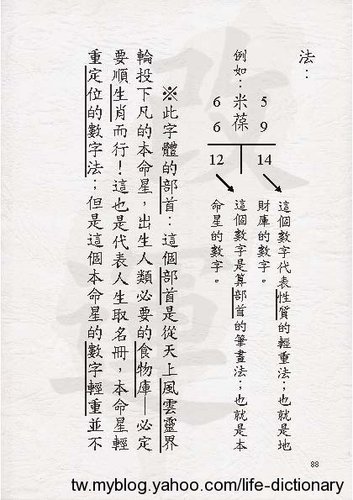 法：
例如：
6 米 5
6 葆 9
12 14
這個數字代表性質的輕重法；也就是地
財庫的數字。
這個數字是算部首的筆畫法；也就是本
命星的數字。
※此字體的部首：這個部首是從天上風雲靈界
輪投下凡的本命星，出生人類必要的食物庫—必定
要順生肖而行！這也是代表人生取名冊，本命星輕
重定位的數字法；但是這個本命星的數字輕重並不
改運
88
tw.myblog.yahoo.com/life-dictionary